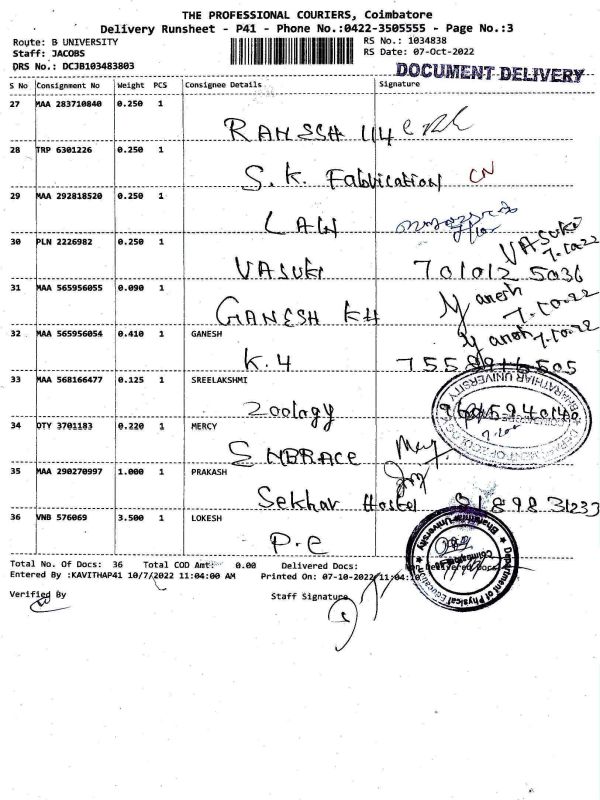 THE PROFESSIONAL COURIERS, Coimbatore
Delivery Runsheet - P41 - Phone No.:0422-3505555 - Page No.:3
Route: B UNIVERSITY RS No.: 1034838
Staff: JACOBS RS Date: 07-Oct-2022
DRS No.: DCJB103483803
DOCUMENT DELIVERY
S No Consignment No Weight PCS Consignee Details Signature
27 MAA 283710840 0.250 1
RAMESH 114
28 TRP 6301226 0.250 1
S.K. Fabrication CN
29 MAA 292818520 0.250 1
LAW
30 PLN 2226982 0.250 1
VASUKI 7.10.22
VASUKI 701012 5036
31 MAA 565956055 0.090 1
GANESH KH 7.10.22
32 MAA 565956054 0.410 1 GANESH
7.10.22
K.4
33 MAA 568166477 0.125 1 SREELAKSHMI
BHARATHIAR UNIVERSITY
Zoology
DEPARTMENT OF ZOOLOGY
34 OTY 3701183 0.220 1 MERCY
35 MAA 290270997 1.000 1 PRAKASH
Sekhar Hostel 81898 31233
36 VNB 576069 3.500 1 LOKESH
P.e
Bharathiar University
Department of Physical Education
Total No. Of Docs: 36 Total COD Amt: 0.00 Delivered Docs: Non Delivered Docs
Entered By :KAVITHAP41 10/7/2022 11:04:00 AM Printed On: 07-10-2022 11:04:10
Verified By Staff Signature